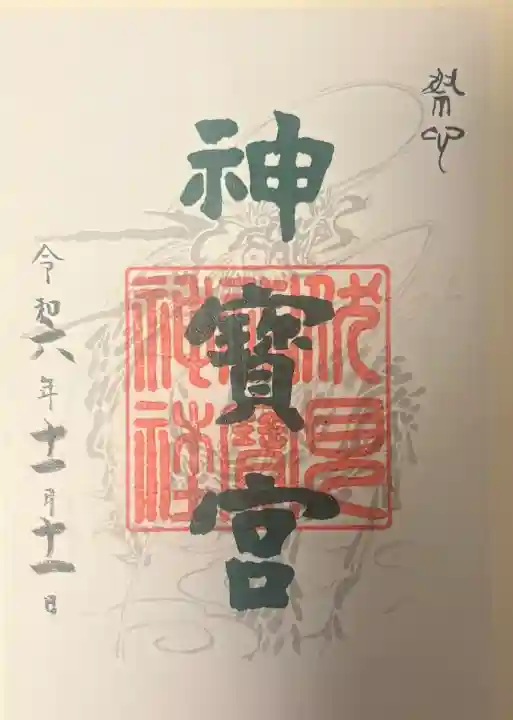 神寶宮
伏見
神寶
神社
令和六年十一月十一日